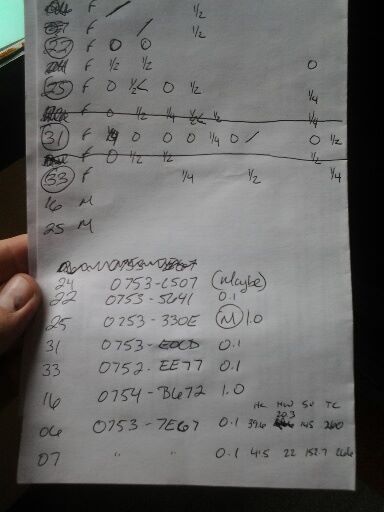 F / 1/2
F / 1/2
22 F 0 0
F 1/2 1/2 0
25 F 0 1/2< 0 1/2 1/4
0 1/2 1/4 1/2 1/2 1/4
31 F 0 0 0 1/4 0 / 0 1/2
F 0 1/2 1/2 1/2
33 F 1/4 1/2 1/4
16 M
25 M
24 0753-C507 (Maybe)
22 0753-5641 0.1
25 0753-330E M 1.0
31 0753-E0CD 0.1
33 0752-EE77 0.1
16 0754-B672 1.0
HL HW SV TC
20.3
06 0753-7E67 0.1 39.6 145 260
07 " " 0.1 41.5 22 152.7